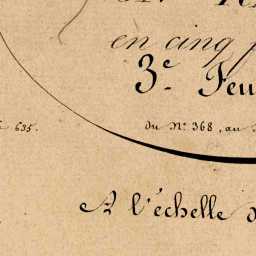 en cinq
3.e Feu
635.
du N.° 368, au
A l'échelle